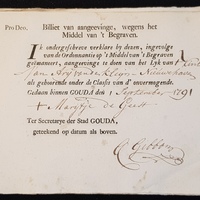 Pro Deo. Billiet van aangeevinge, wegens het
Middel van 't Begraven.
Ik ondergeschreve verklare by dezen, ingevolge
van de Ordonnantie op 't Middel van 't Begraven
geëmaneert, aangevinge te doen van het Lyk van
van de Nieuwehaven
als gehoorende onder de Classis van d' onvermogende.
Gedaan binnen GOUDA den 1 September 1791
+ Marytje de Geest
Ter Secretarye der Stad GOUDA,
geteekend op datum als boven.